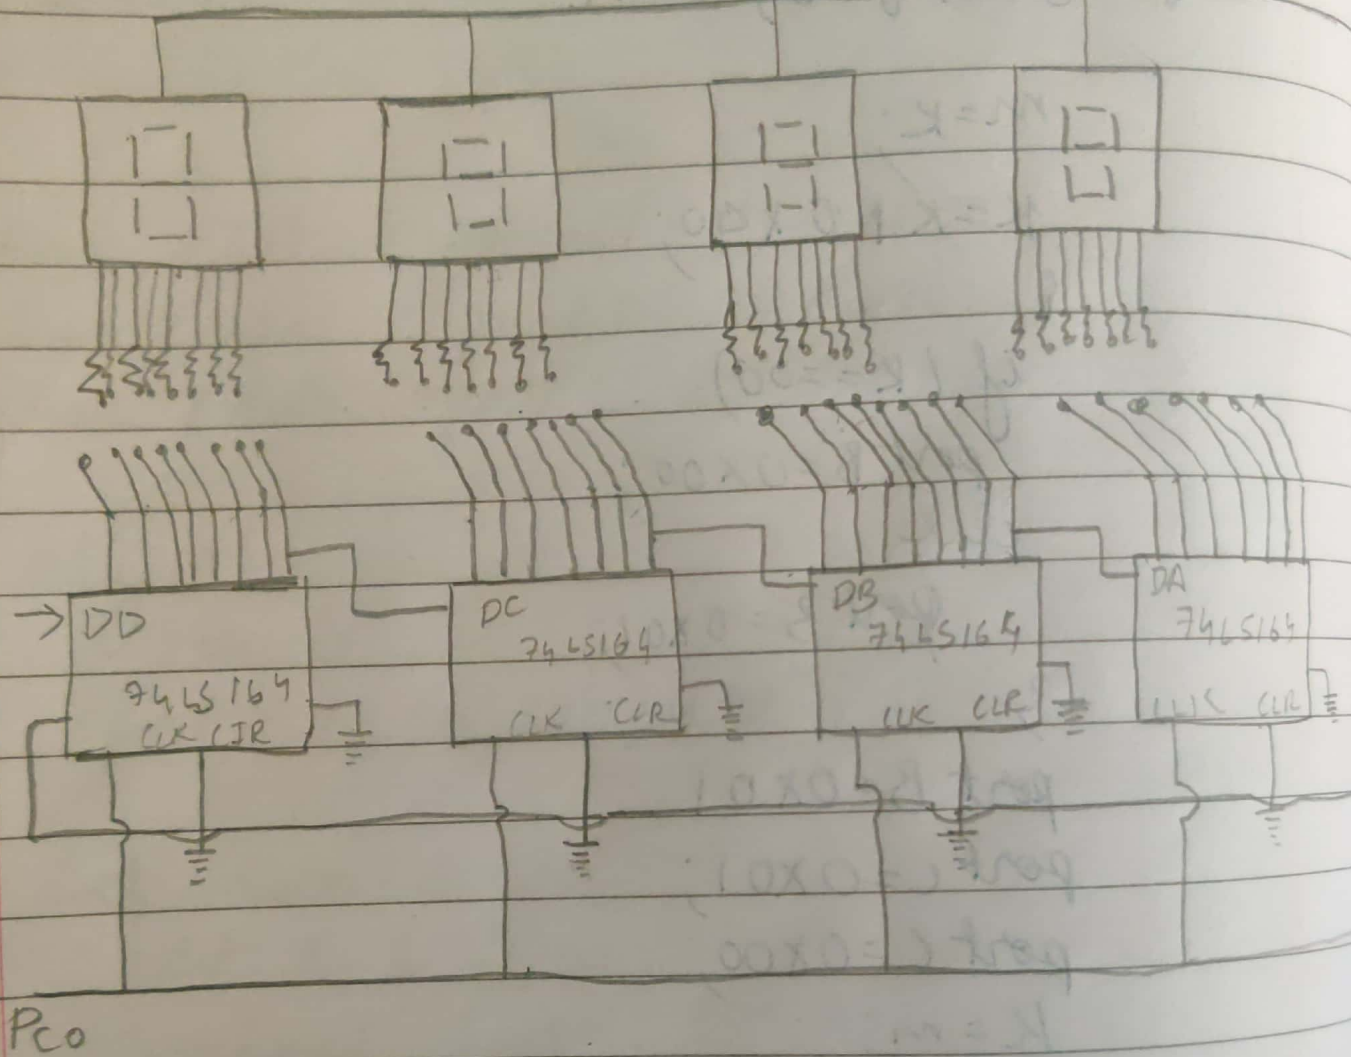 DD
74LS164
CLK CLR
DC
74LS164
CLK CLR
DB
74LS164
CLK CLR
DA
74LS164
CLK CLR
PC0